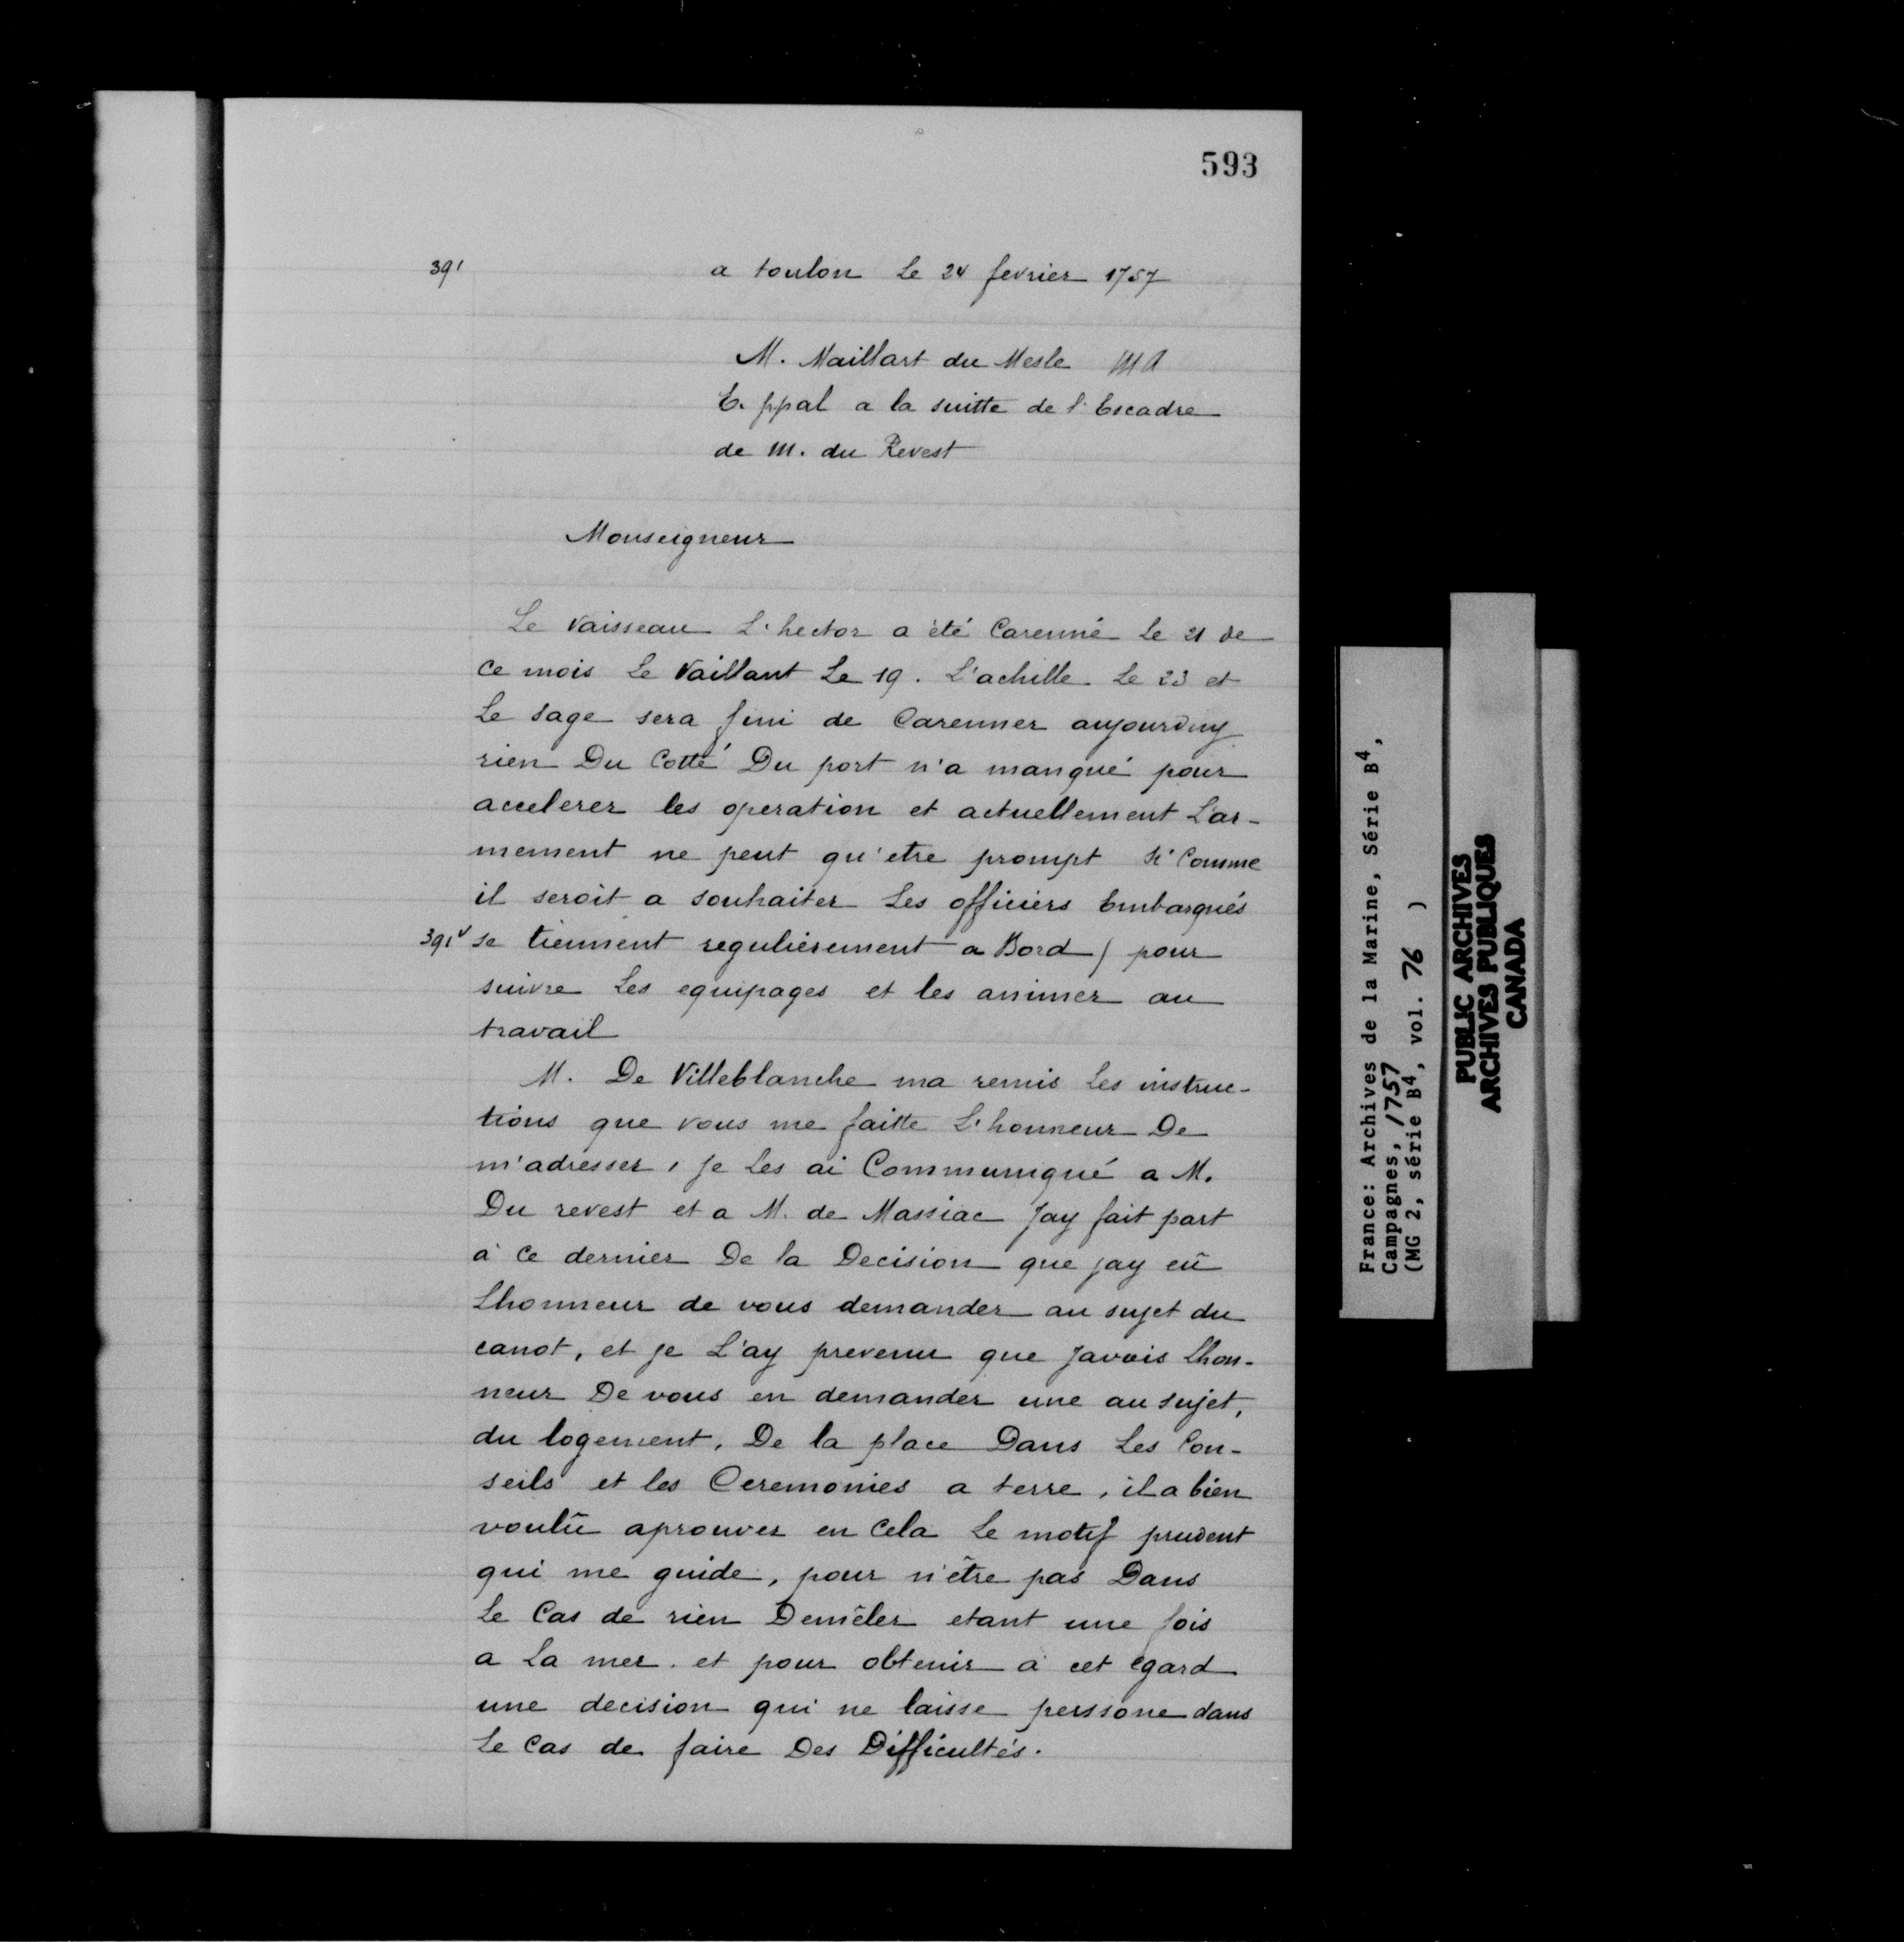 593
391
a toulon Le 24 fevrier 1757
M. Maillart du Mesle MA
E. ppal a la suitte de l'Escadre
de M. du Revest
Monseigneur
Le Vaisseau L'hector a été Carenné Le 21 de
ce mois Le Vaillant Le 19. L'achille Le 23 et
Le Sage sera fini de Carenner aujourduy
rien Du Cotté Du port n'a manqué pour
accelerer les operation et actuellement L'ar-
mement ne peut qu'etre prompt Si Comme
il seroit a souhaiter Les officiers Embarqués
391v se tiennent regulièrement a Bord / pour
suivre Les equipages et les animer au
travail
M. De Villeblanche ma remis Les instruc-
tions que vous me faitte L'honneur De
m'adresser, je Les ai Communiqué a M.
Du revest et a M. de Massiac Jay fait part
à Ce dernier De la Decision que jay eû
Lhonneur de vous demander au sujet du
canot, et je L'ay prevenu que Javais Lhon-
neur De vous en demander une au sujet,
du logement, De la place Dans Les Con-
seils et les Ceremonies a terre, il a bien
voulû aprouver en Cela Le motif prudent
qui me guide, pour n'être pas Dans
Le Cas de rien Demêler etant une fois
a La mer. et pour obtenir à cet egard
une decision qui ne laisse perssone dans
Le Cas de faire Des Difficultés.
France: Archives de la Marine, Série B4,
Campagnes, 1757
(MG 2, série B4, vol. 76 )
PUBLIC ARCHIVES
ARCHIVES PUBLIQUES
CANADA